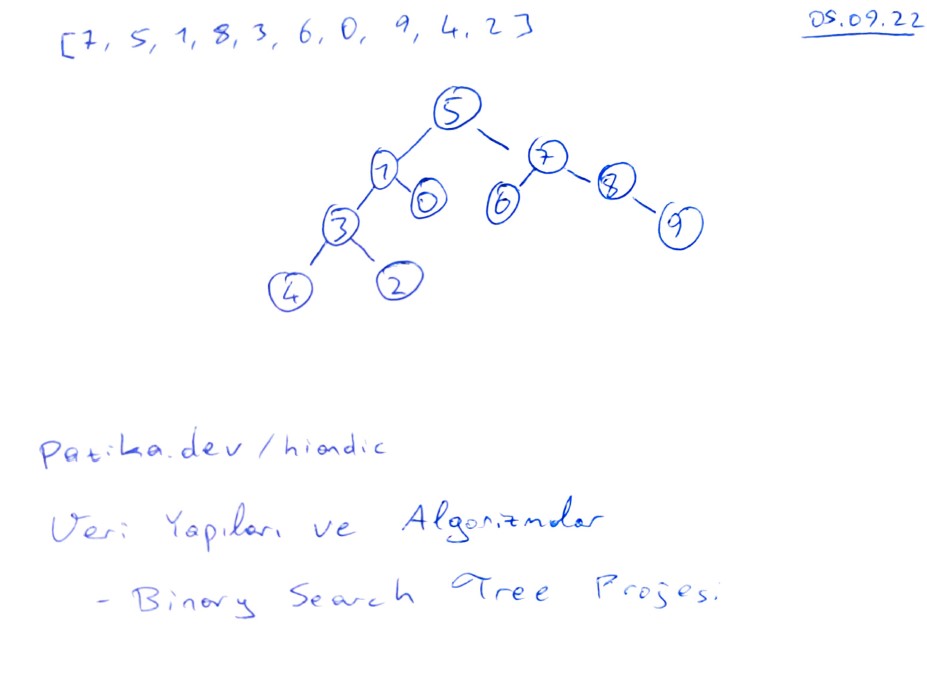 [7, 5, 1, 8, 3, 6, 0, 9, 4, 2]
05.09.22
5
1
7
0
6
8
3
9
4
2
Patika.dev/hiondic
Veri Yapıları ve Algoritmalar
- Binary Search Tree Projesi